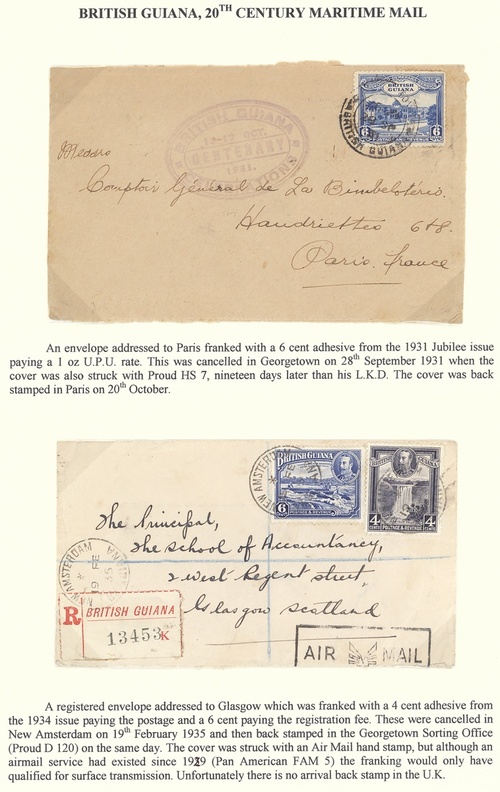 BRITISH GUIANA, 20TH CENTURY MARITIME MAIL
BRITISH GUIANA
12-12 OCT.
CENTENARY
1931.
BRITISH
GUIANA
6 6
BRITISH GUIANA
Messrs
Comptoir Général de La Bimbeloterie.
Haudriettes 6&8.
Paris. France
An envelope addressed to Paris franked with a 6 cent adhesive from the 1931 Jubilee issue
paying a 1 oz U.P.U. rate. This was cancelled in Georgetown on 28th September 1931 when the
cover was also struck with Proud HS 7, nineteen days later than his L.K.D. The cover was back
stamped in Paris on 20th October.
NEW AMSTERDAM
BRITISH GUIANA
6
POSTAGE & REVENUE
BRITISH GUIANA
4 CENTS
POSTAGE & REVENUE
4 CENTS
The Principal,
The School of Accountancy,
2 West Regent Street,
Glasgow Scotland
NEW AMSTERDAM
19 FE
35
R BRITISH GUIANA
13453K
AIR MAIL
A registered envelope addressed to Glasgow which was franked with a 4 cent adhesive from
the 1934 issue paying the postage and a 6 cent paying the registration fee. These were cancelled in
New Amsterdam on 19th February 1935 and then back stamped in the Georgetown Sorting Office
(Proud D 120) on the same day. The cover was struck with an Air Mail hand stamp, but although an
airmail service had existed since 1929 (Pan American FAM 5) the franking would only have
qualified for surface transmission. Unfortunately there is no arrival back stamp in the U.K.